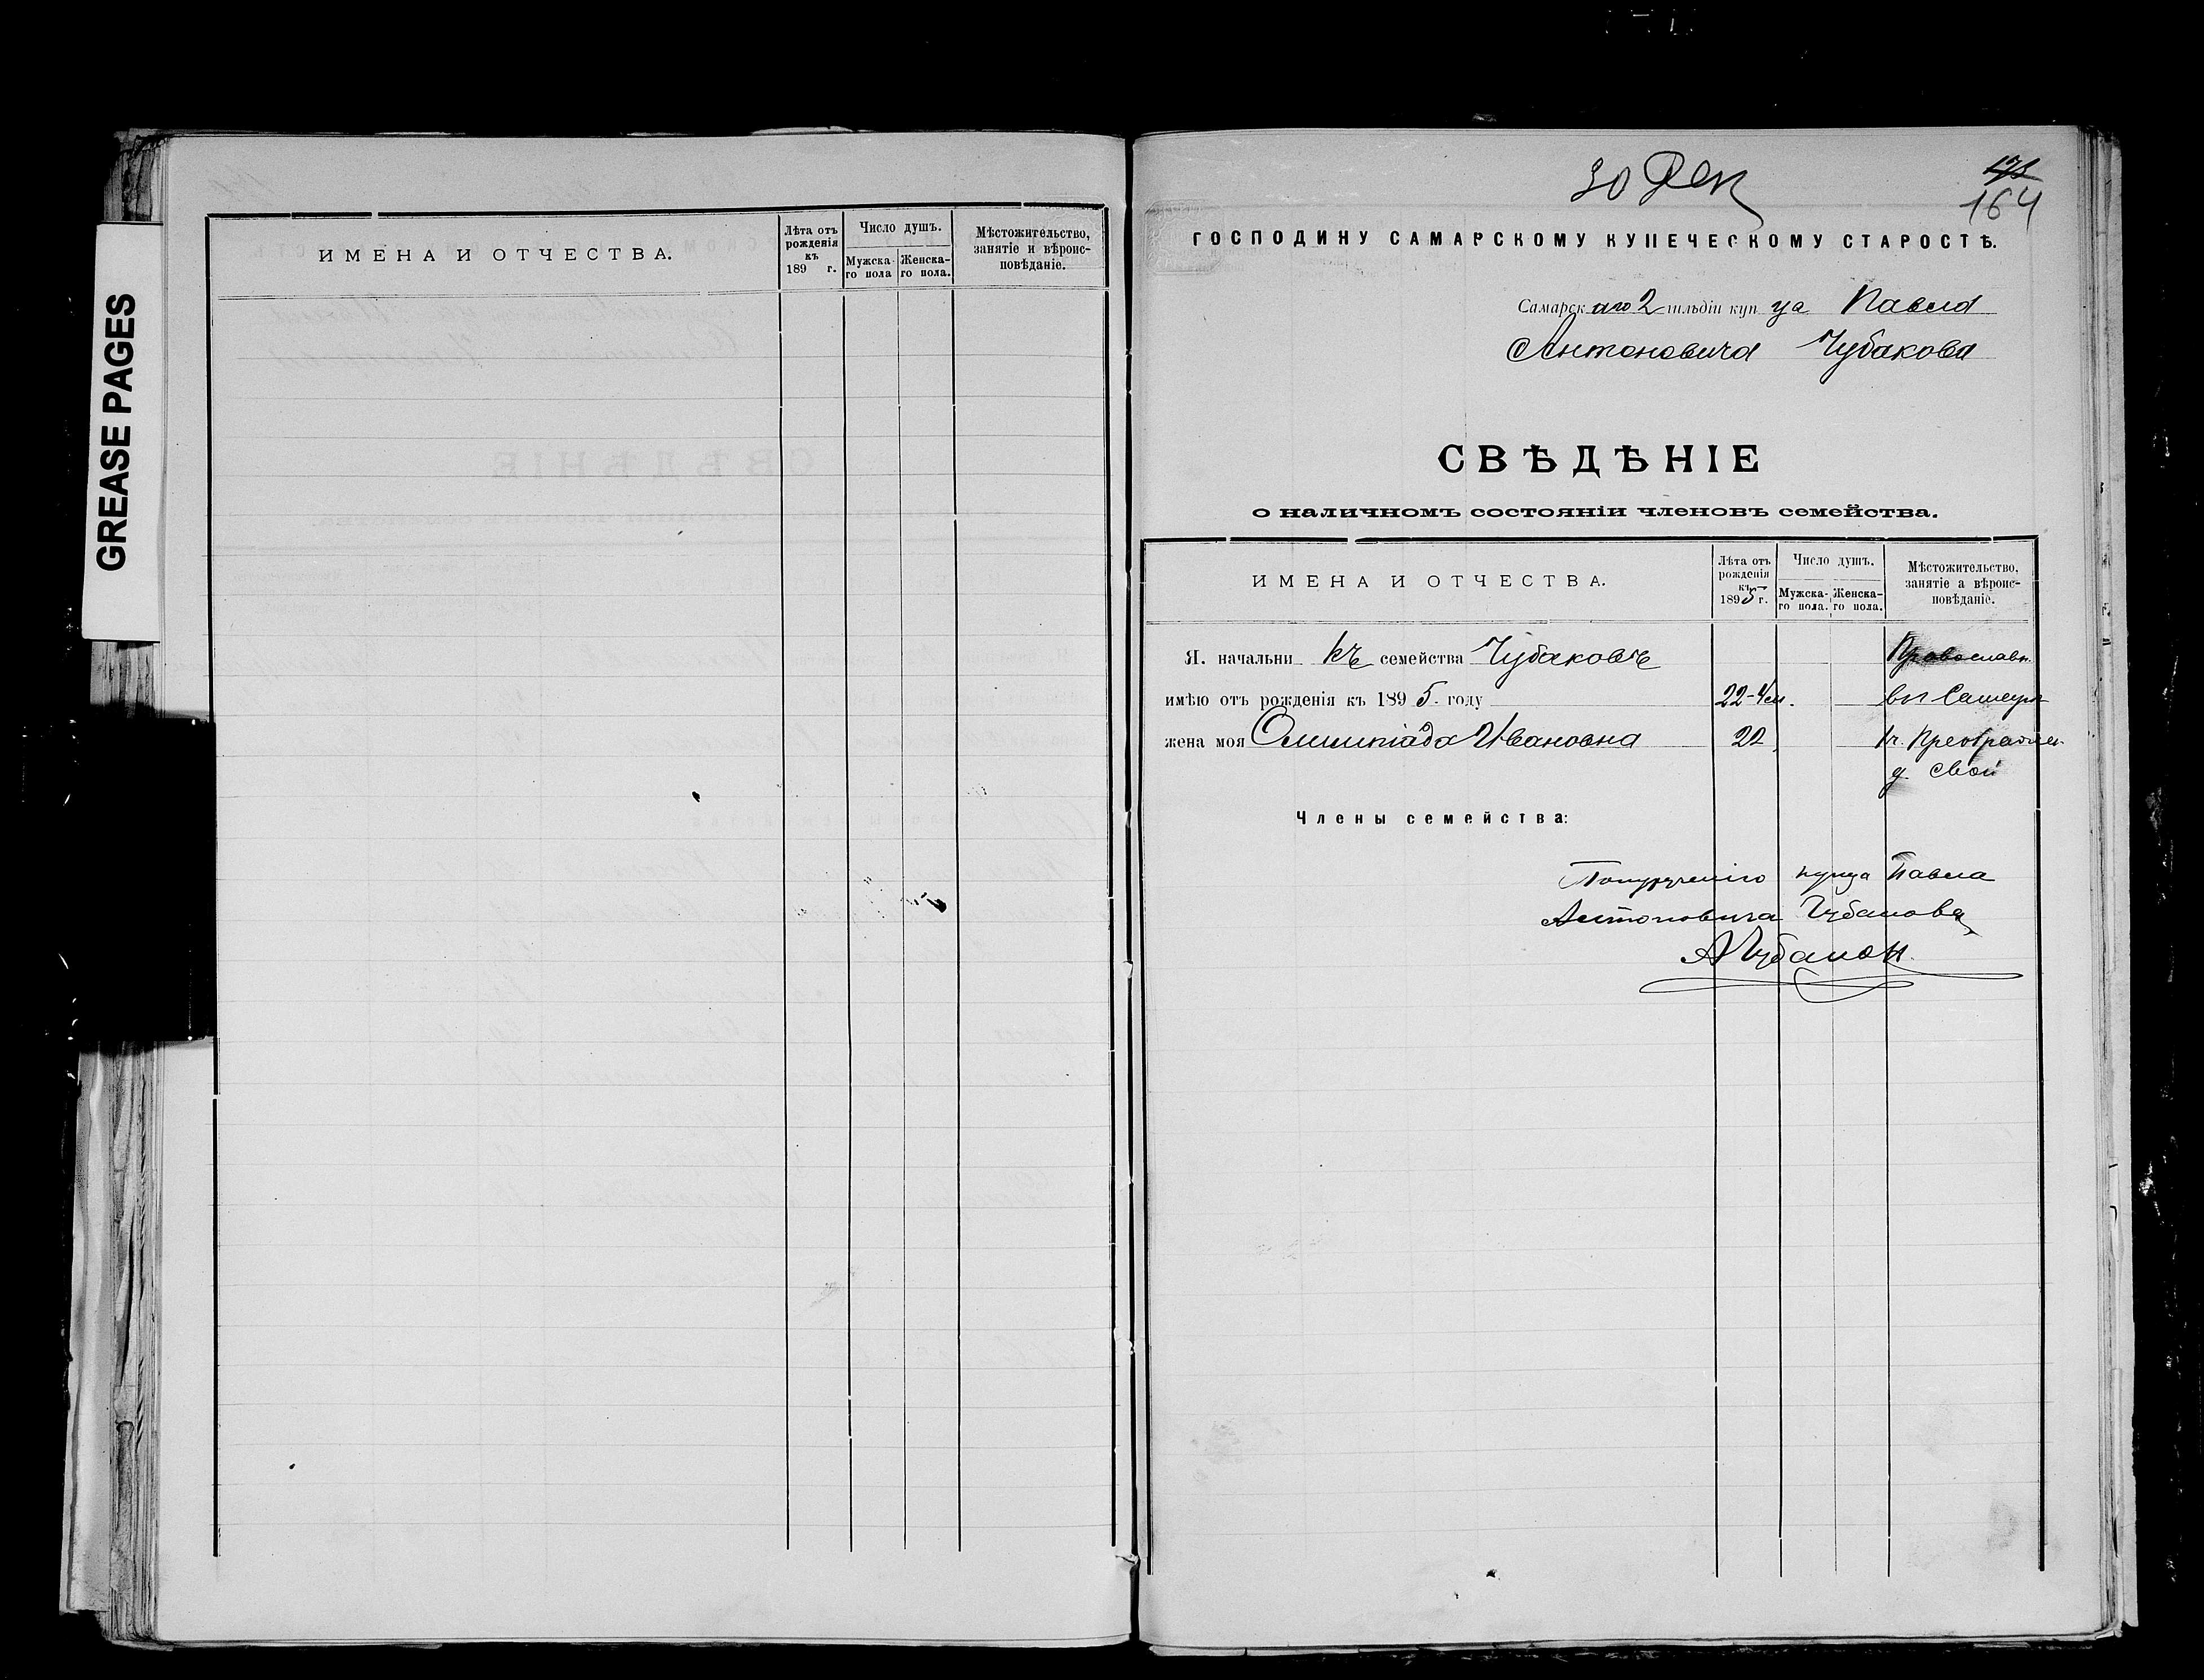 GREASE PAGES
ИМЕНА И ОТЧЕСТВА.
Лѣта отъ рожденія къ 189 г.
Число душъ.
Мужска-го пола
Женска-го пола.
Мѣстожительство, занятіе и вѣроис-повѣданіе.
30 Дек
171
164
ГОСПОДИНУ САМАРСКОМУ КУПЕЧЕСКОМУ СТАРОСТѢ.
Самарскаго 2 гильдіи купца Павла
Антоновича Чубакова
СВѢДѢНІЕ
о наличномъ состояніи членовъ семейства.
ИМЕНА И ОТЧЕСТВА.
Лѣта отъ рожденія къ 1895 г.
Число душъ.
Мужска-го пола.
Женска-го пола.
Мѣстожительство, занятіе а вѣроис-повѣданіе.
Я. начальникъ семейства Чубаковъ Православн.
имѣю отъ рожденія къ 1895 году 22
жена моя Олимпіада Ивановна 22
д свой
Члены семейства:
купца Павла
Антоновича Чубакова
АЧубаков